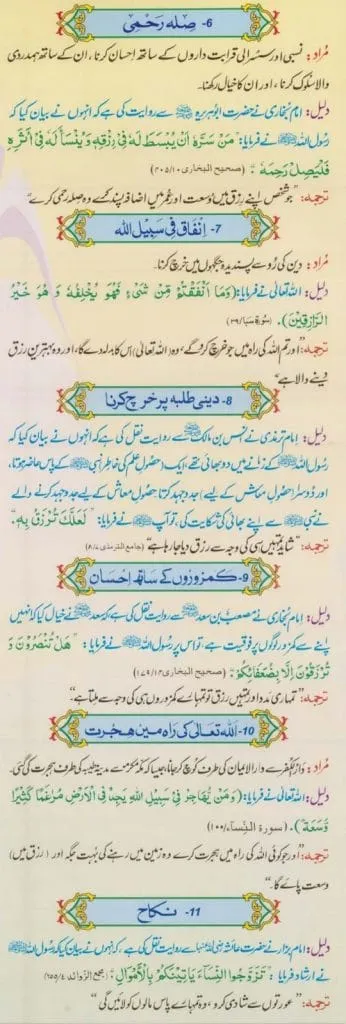 6- صِلہ رَحمی
مُراد : نسبی اور سسرالی قرابت داروں کے ساتھ احسان کرنا، ان کے ساتھ ہمدردی
والا سلوک کرنا، اور ان کا خیال رکھنا۔
دلیل: امام بخاری نے حضرت ابوہریرہ ؓ سے روایت کی ہے کہ انہوں نے بیان کیا کہ
رسول اللہ ﷺ نے فرمایا: ”مَنْ سَرَّهُ اَنْ يُبْسَطَ لَهُ فِي رِزْقِهِ وَيُنْسَأَ لَهُ فِي اَثَرِهِ
فَلْيَصِلْ رَحِمَهُ“۔ (صحیح البخاری ۴۰۵/۱۰)
ترجمہ: ”جو شخص اپنے رزق میں وُسعت اور عُمر میں اضافہ پسند کرے وہ صلہ رحمی کرے“
7- اِنفَاق فِی سَبِیْلِ اللہ
مُراد : دین کی رُو سے پسندیدہ جگہوں میں خرچ کرنا۔
دلیل: اللہ تعالیٰ نے فرمایا: (وَمَا اَنْفَقْتُمْ مِّنْ شَىْءٍ فَهُوَ يُخْلِفُهٗ وَ هُوَ خَيْرُ
الرَّازِقِيْنَ)۔ (سُورَۃ سَبَا/۳۹)
ترجمہ: ”اور تم اللہ کی راہ میں جو خرچ کرو گے، وہ (اللہ تعالیٰ) اس کا بدلہ دے گا، اور وہ بہترین رزق
دینے والا ہے“
8- دینی طلبہ پر خرچ کرنا
دلیل: امام ترمذی نے انس بن مالک ؓ سے روایت نقل کی ہے کہ انہوں نے بیان کیا کہ
رسول اللہ ﷺ کے زمانے میں دو بھائی تھے، ایک (حصولِ علم کی خاطر نبی ﷺ کے پاس حاضر ہوتا،
اور دُوسرا (حصولِ معاش کے لیے) جدوجہد کرتا، حصولِ معاش کے لیے جدوجہد کرنے والے
نے نبی ﷺ سے اپنے بھائی کی شکایت کی، تو آپ ﷺ نے فرمایا: ”لَعَلَّكَ تُرْزَقُ بِهِ“۔
ترجمہ: ”شاید تمہیں اسی کی وجہ سے رزق دیا جا رہا ہے“ (جامع الترمذی ۸/۷)
9- کمزوروں کے ساتھ احسان
دلیل: امام بخاری نے مصعب بن سعد ؓ سے روایت نقل کی ہے کہ سعد ؓ نے خیال کیا کہ انہیں
اپنے سے کمزور لوگوں پر فوقیت ہے، تو اس پر رسول اللہ ﷺ نے فرمایا: ”هَلْ تُنْصَرُوْنَ وَ
تُرْزَقُوْنَ اِلَّا بِضُعَفَائِكُمْ“۔ (صحیح البخاری ۱۷۹/۱۴)
ترجمہ: ”تمہاری مدد اور تمہیں رزق تو تمہارے کمزوروں ہی کی وجہ سے ملتا ہے“۔
10- اللہ تعالیٰ کی راہ میں ہجرت
مُراد : دارُالکفر سے دارالایمان کی طرف کُوچ کر جانا، جیسا کہ مکہ مکرمہ سے مدینہ طیبہ کی طرف ہجرت کی گئی۔
دلیل: اللہ تعالیٰ نے فرمایا: (وَ مَنْ يُّهَاجِرْ فِيْ سَبِيْلِ اللّٰهِ يَجِدْ فِي الْاَرْضِ مُرٰغَمًا كَثِيْرًا
وَّسَعَةً)۔ (سورة النِّساء/۱۰۰)
ترجمہ: ”اور جو کوئی اللہ کی راہ میں ہجرت کرے وہ زمین میں رہنے کی بہت جگہ اور (رزق میں)
وسعت پائے گا“۔
11- نکاح
دلیل: امام بزار نے حضرت عائشہ رضی اللہ عنہا سے روایت نقل کی ہے، کہ انہوں نے بیان کیا کہ رسول اللہ ﷺ
نے ارشاد فرمایا: ”تَزَوَّجُوا النِّسَاءَ يَاْتِيْنَكُمْ بِالْاَمْوَالِ“۔ (مجمع الزوائد ۲۵۵/۴)
ترجمہ: ”عورتوں سے شادی کرو، وہ تمہارے پاس مالوں کو لائیں گی“